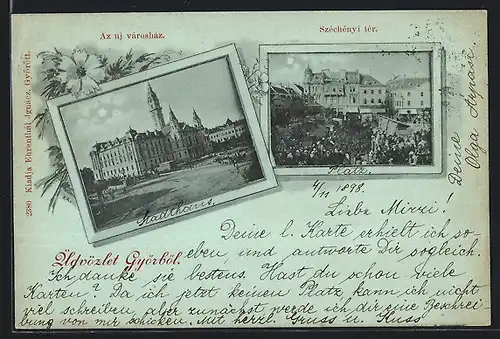 Az uj városház.
Széchényi tér.
2380 Kiadja Ehrenthál Ignácz, Győrött.
Stadthaus
Platz
4/11 1898.
Liebe Mirzi!
Üdvözlet Győrből.
Deine l. Karte erhielt ich so-
eben, und antworte Dir sogleich.
Ich danke sie bestens. Hast du schon viele
Karten? Da ich jetzt keinen Platz, kann ich nicht
viel schreiben, aber zunächst werde ich dir eine Beschrei
bung von mir schicken. Mit herzl. Gruss u. Kuss
Deine
Olga